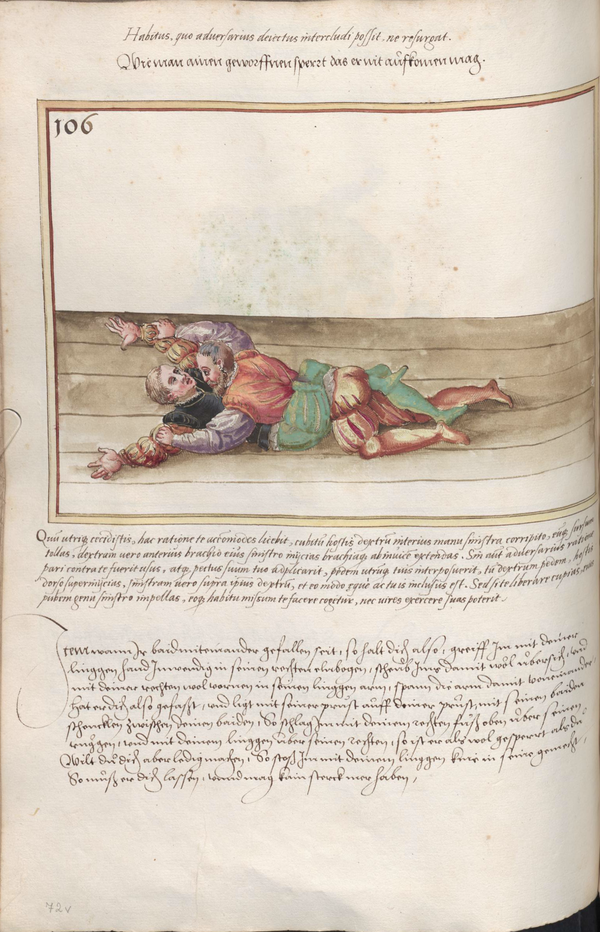 Habitus, quo adversarius deiectus intercludi possit, ne resurgat.
Wie man ainen geworffnen sperrt das er nit aufkomen mag.
106
Quū utrique cecidistis, hac ratione te accōmodes licebit, cubitū hostis dextrū interius manu sinistra corripito, eumque sursum
tollas, dextram vero anterius brachio eius sinistro inijcias brachiaque ab invicē extendas. Sin aūt adversarius ratione
pari contra te fuerit usus, atque pectus suum tuo adplicarit, pedem utrumque tuis interposuerit, tu dextrum pedem, hostis
dorso superinijcias, sinistram vero supra ipius dextrū, et eo modo eque ac tu is inclusus est. Sed si te liberare cupias,
pubem genu sinistro impellas, eoque habitu missum te facere cogetur, nec vires exercere suas poterit.
Item wann Ir baid mitainander gefallen seit, so halt dich also, greiff Im mit deiner
linggen hand Inwendig in seinen rechten elnbogen, scheub Imo damit wol ubersich, und
mit deiner rechten wol vornen in seinen linggen arm, spann die arm damit vonainander,
hat er dich also gefasst, und ligt mit seiner prust auff deiner prust, mit seinen baiden
schencklen zwischen deinen baiden, So schlag Im mit deinem rechten fuss oben uber seinen
ruggen, und mit deinem linggen uber seinen rechten, so ist er als wol gesperrt als du
Wilt du dich aber ledig machen, So stoss Im mit deinem linggen knie in seine gemecht,
So muss er dich lassen, unnd mag kain sterck mer haben,
72v